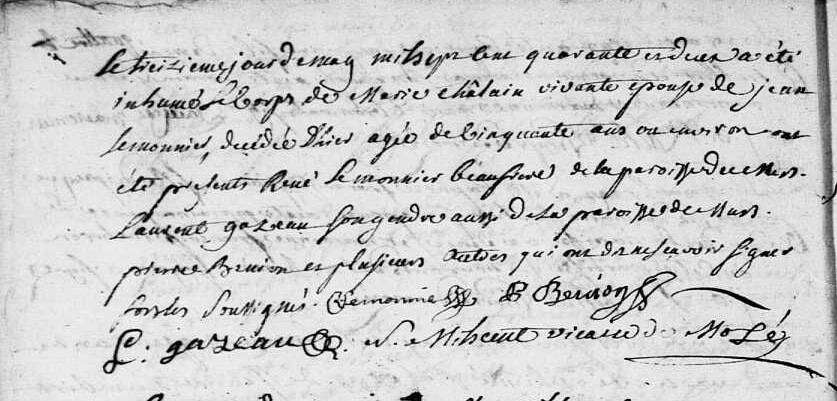 le treizieme jour de may mil sept cent quarante et deux a été
inhumé le corps de Marie Châlain vivante epouse de jean
lemonnier, decedée D'hier agée de Cinquante ans ou environ ont
été presents René lemonnier beaufrere de la paroisse de Murs.
Laurent gazeau son gendre aussi de la paroisse de Murs.
pierre Benion et plusieurs autres qui ont dit ne scavoir signer
fors les soussignés. Lemonnie P Benion
L. gazeau vicaire de Mozé